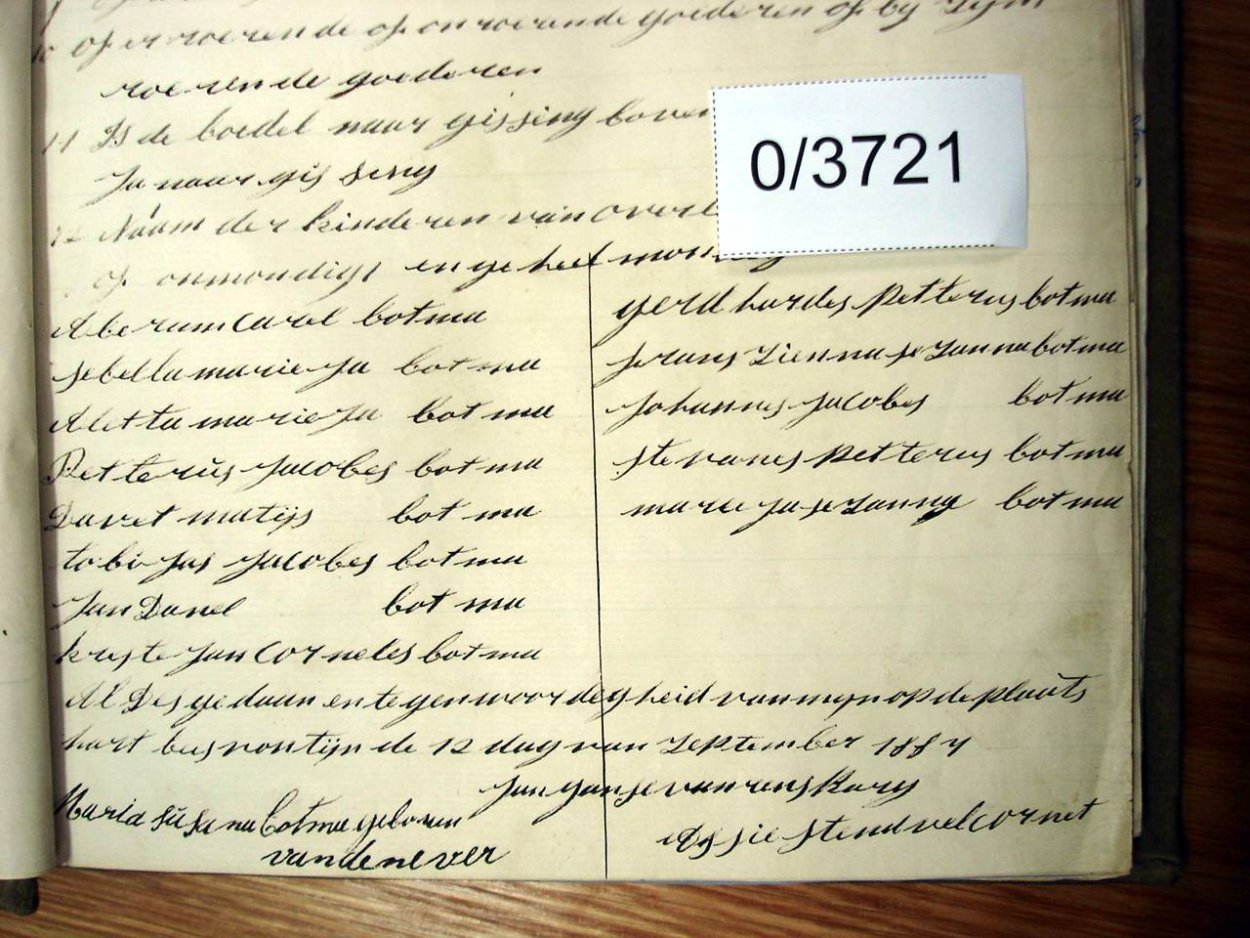 10 Of er roerende of onroerende goederen of by Zyn
roerende goederen
11 Is de boedel naar gissing boven
Ja naar gis sing
12 Naam der kinderen van Over
of onmondigt en ge heel mon
0/3721
Abe ram Carel botma
Jebella marie Ja bot ma
Aletta marie Ja bot ma
Petterus Jacobes bot ma
Davet matijs bot ma
tobi Jas Jacobes bot ma
Jan Danel bot ma
kryste Jan Cor neles bot ma
gerd hardes Pet terus bot ma
frans Zienna se Zan na bot ma
Johannes Jacobes bot ma
ste vanes Pet terus bot ma
marie Ja se Zanna bot ma
Al Des gedaan en te gen woor deg heid van myn op de plaats
hart bees fontijn de 12 dag van September 1884
Jan Janse van rens Burg
Maria Susanna botma geboren
van de never
As sie stend vel cornet